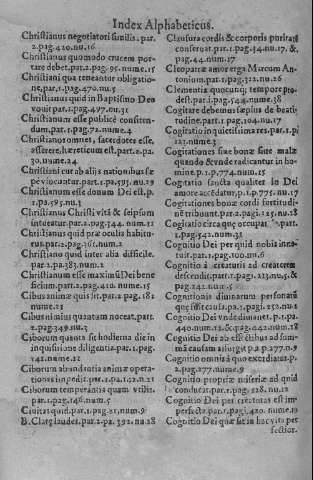 Index Alphabeticus.
Christianus negotiatori similis. par.
2. pag. 420. nu. 16
Christianus quomodo crucem por-
tare debet. par. 2. pag. 95. nume. 15
Christiani qua teneantur obligatio-
ne, par. 1. pag. 470. nu. 5
Christianus quid in Baptismo Deo
vouit par. 1. pag. 497. nu. 31
Christianum esse publicè
dum, par. 1. pag. 72. nume. 4
Christianos omnes, sacerdotes esse,
asserere, hæreticum est. part. 2. pa.
30. nume. 24
Christiani cur ab alijs nationibus sæ
pè vocantur. part. 1. pa. 593. nu. 29
Christianum esse donum Dei est. p.
1. pa. 595. nu. 3
Christianus Christi vitã & seipsum
intueatur. par. 2. pag. 344. num. 12
Christianus quid præ oculis habitu-
rus. par. 2. pag. 361. num. 2
Christiano quid inter alia difficile.
par. 2. pa. 383. num. 1
Christianum esse maximũ Dei bene
ficium part. 2. pag. 420. nume. 15
Cibus animæ quis sit. par. 2. pag. 182
nume. 21
Cibus nimius quantum noceat. part.
2. pag. 349. nu. 3
Ciborum quanta sit hodierna die in
inquisitione diligentia. par. 1. pag.
141. nume. 12
Ciborum abundantia animæ opera-
tiones impedit. par. 1. pa. 142. nu. 21
Ciborum temperantia quam vtilis.
part. 1. pag. 146. num. 5
Ciuitas quid. part. 1. pag. 21. num. 9
B. Clarę laudes. par. 2. pa. 392. nu. 28
Clausura cordis & corporis puritatẽ
conseruat. par. 1. pag. 34. nu. 17. &,
pag. 44. num. 17
Cleopatræ amor erga Marcum An-
tonium. pat. 1. pag. 312. nu. 26
Clementia quocunq; tempore pro-
dest. par. 1. pag. 544. nume. 38
Cogitare debemus sæpius de beati-
tudine. part. 1. pag. 104. nu. 17
Cogitatio inquietissima res. par. 1. pa
123. nume. 3
Cogitationes siue bonæ siue malæ
quando & vnde radicantur in ho-
mine. p. 1. p. 774. num. 15
Cogitatio sancta qualiter in Dei
amore accẽdatur, p. 1. p. 775. nu. 17
Cogitationes bonæ cordi fortitudi-
nẽ tribuunt. par. 2. pag. 125. nu. 28
Cogitatio circa quę occupar part.
1. pag. 542. num. 31
Cognitio Dei per quid nobis inno-
tuit. par. 1. pag. 100. nu. 6
Cognitio à creaturis ad creatorem
descendit. part. 1. pag. 123. nu. 5. &
pag. 242. num. 5
Cognitionis diuinarum personarũ
quę sit causa. pa. 1. pagi. 252. nu. 2
Cognitio Dei vnde diuinet. p. 1. pa.
440. num. 13. & pag. 442. num. 18
Cognitio Dei ab effectibus ad sum-
mã causam assurgit p. 2. p. 277. n. 9
Cognitio omniũ à quo exordiatur. p.
2. pag. 277. nume. 9
Cognitio propriæ miseriæ ad quid
conducat. par. 1. pag. 328. nu. 12
Cognitio Dei per creaturas est im-
perfecta part. 1. pagi. 420. nume. 12
Cognitio Dei quæ sit in hac vita per
fectior.